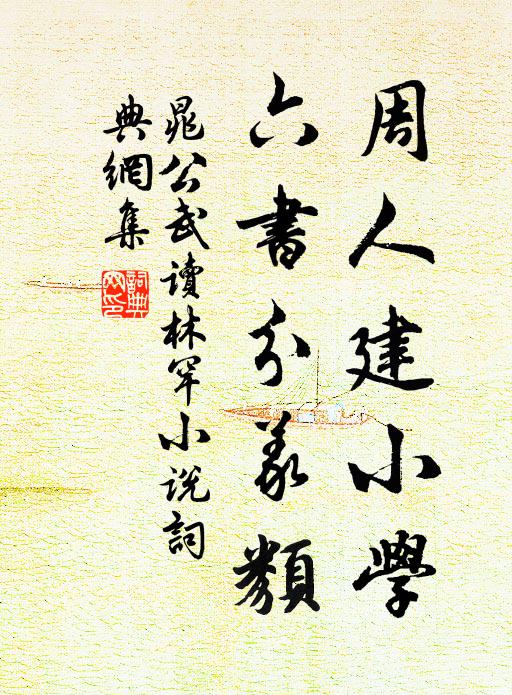 周人建小學
六書分義類
晁公武讀林罕小說詞
典網集
詞典
网印